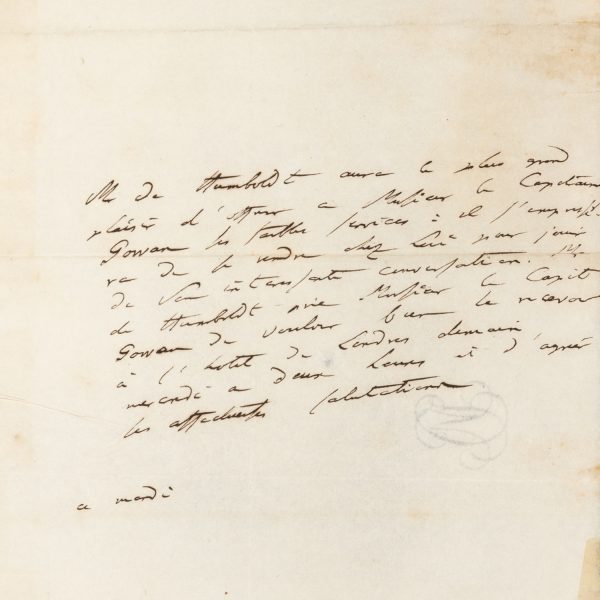 Mr de Humboldt aura le plus grand
plaisir d'offrir a Monsieur le Capitaine
Gowan ses faibles services : il s'empresse-
ra de se rendre chez Lui pour jouir
de Son interessante conversation. Mr
de Humboldt prie Monsieur le Capit
Gowan de vouloir bien le recevoir
à l'hotel de Londres demain
mercredi a deux heures et d'agréer
ses affectueuses salutations
a mardi